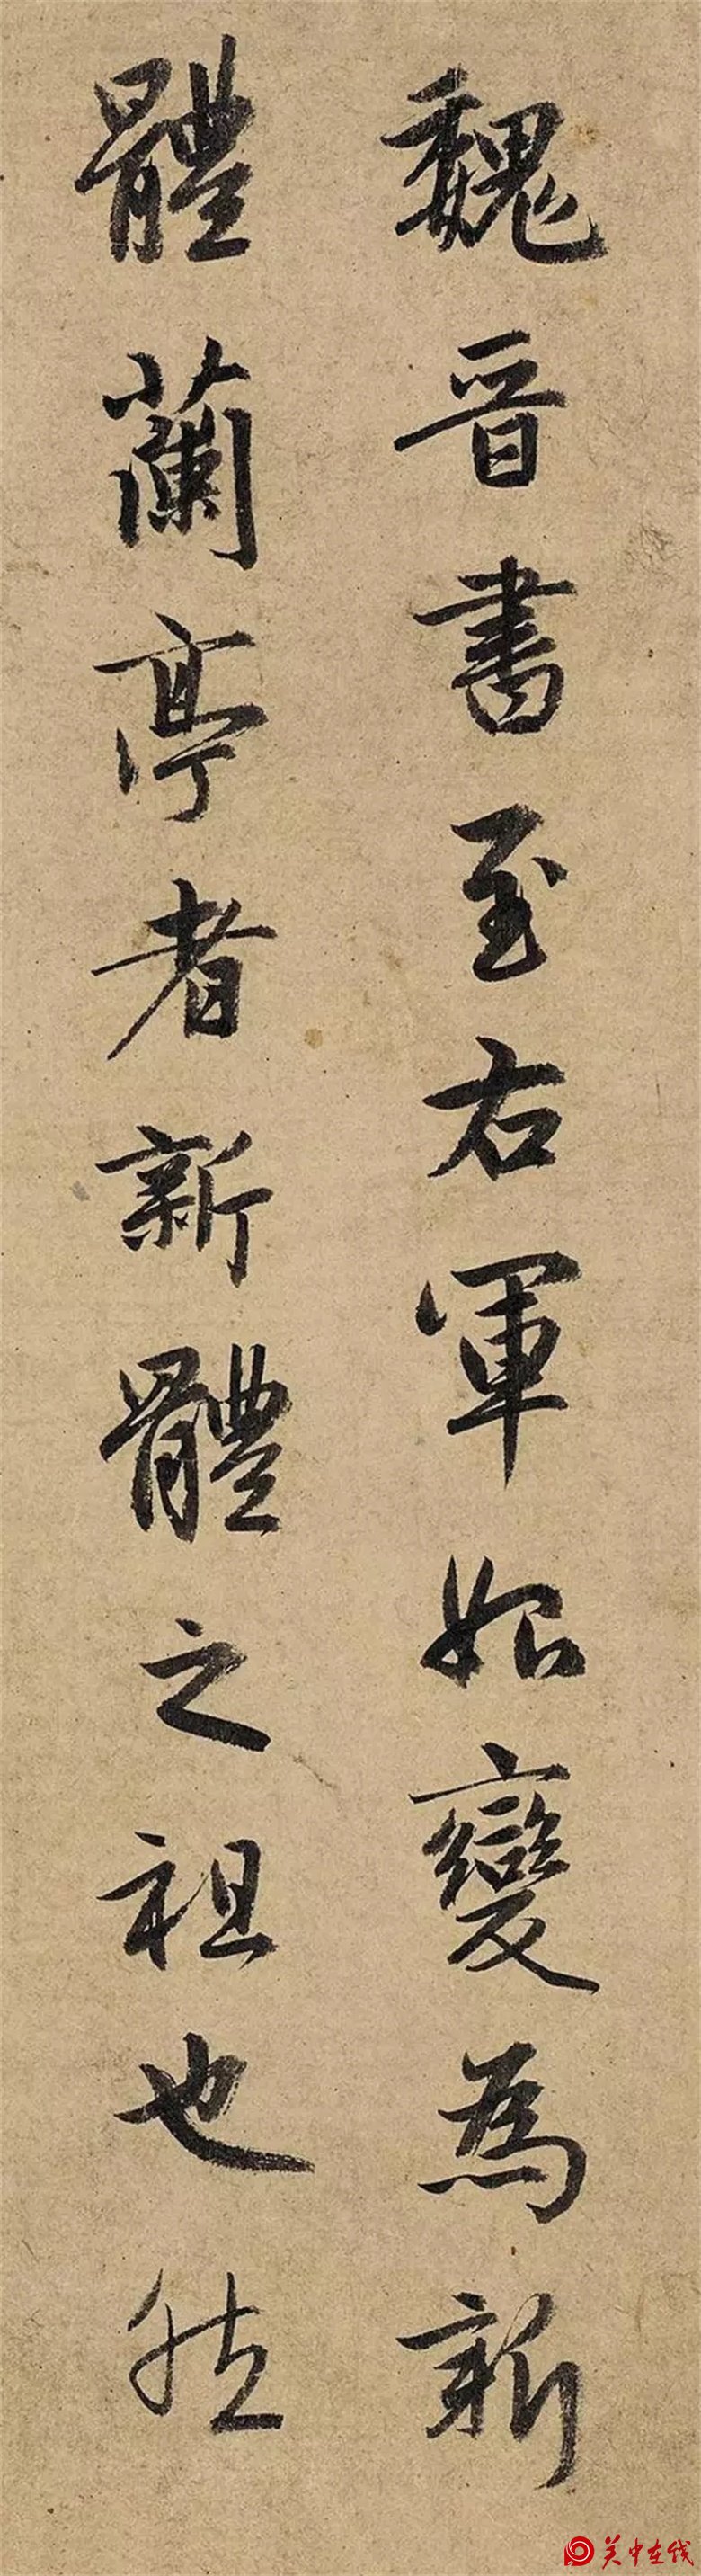 魏晉書至右軍始變為新
體蘭亭者新體之祖也然
关中在线